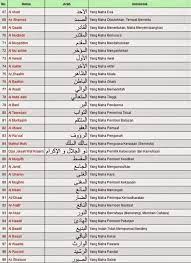 No. Nama Arab Indonesia
67 Al Ahad الأحد Yang Maha Esa
68 As Shamad الصمد Yang Maha Dibutuhkan, Tempat Meminta
69 Al Qaadir القادر Yang Maha Menentukan, Maha Menyeimbangkan
70 Al Muqtadir المقتدر Yang Maha Berkuasa
71 Al Muqaddim المقدم Yang Maha Mendahulukan
72 Al Mu'akkhir المؤخر Yang Maha Mengakhirkan
73 Al Awwal الأول Yang Maha Awal
74 Al Aakhir الأخر Yang Maha Akhir
75 Az Zhaahir الظاهر Yang Maha Nyata
76 Al Baathin الباطن Yang Maha Ghaib
77 Al Waali الوالي Yang Maha Memerintah
78 Al Muta'aalii المتعالي Yang Maha Tinggi
79 Al Barri البر Yang Maha Penderma
80 At Tawwaab التواب Yang Maha Penerima Tobat
81 Al Muntaqim المنتقم Yang Maha
82 Al Afuww العفو Yang Maha Pemaaf
83 Ar Ra'uuf الرؤوف Yang Maha Pengasih
84 Malikul Mulk مالك الملك Yang Maha Penguasa Kerajaan (Semesta)
85 Dzul Jalaali WalIkraam ذو الجلال و الإكرام Yang Maha Pemilik Kebesaran dan Kemuliaan
86 Al Muqsith المقسط Yang Maha Adil
87 Al Jamii' الجامع Yang Maha Mengumpulkan
88 Al Ghaniyy الغنى Yang Maha Berkecukupan
89 Al Mughnii المغنى Yang Maha Pemberi Kekayaan
90 Al Maani المانع Yang Maha Mencegah
91 Ad Dhaar الضار Yang Maha Pemberi Derita
92 An Nafii' النافع Yang Maha Pemberi Manfaat
93 An Nuur النور Yang Maha Bercahaya (Menerangi, Memberi Cahaya)
94 Al Haadii الهادئ Yang Maha Pemberi Petunjuk
95 Al Baadii البديع Yang Maha Pencipta
96 Al Baaqii الباقي Yang Maha Kekal
97 Al Waarits الوارث Yang Maha Pewaris
98 Ar Rasyiid الرشيد Yang Maha Pandai
99 As Shabuur الصبور Yang Maha Sabar